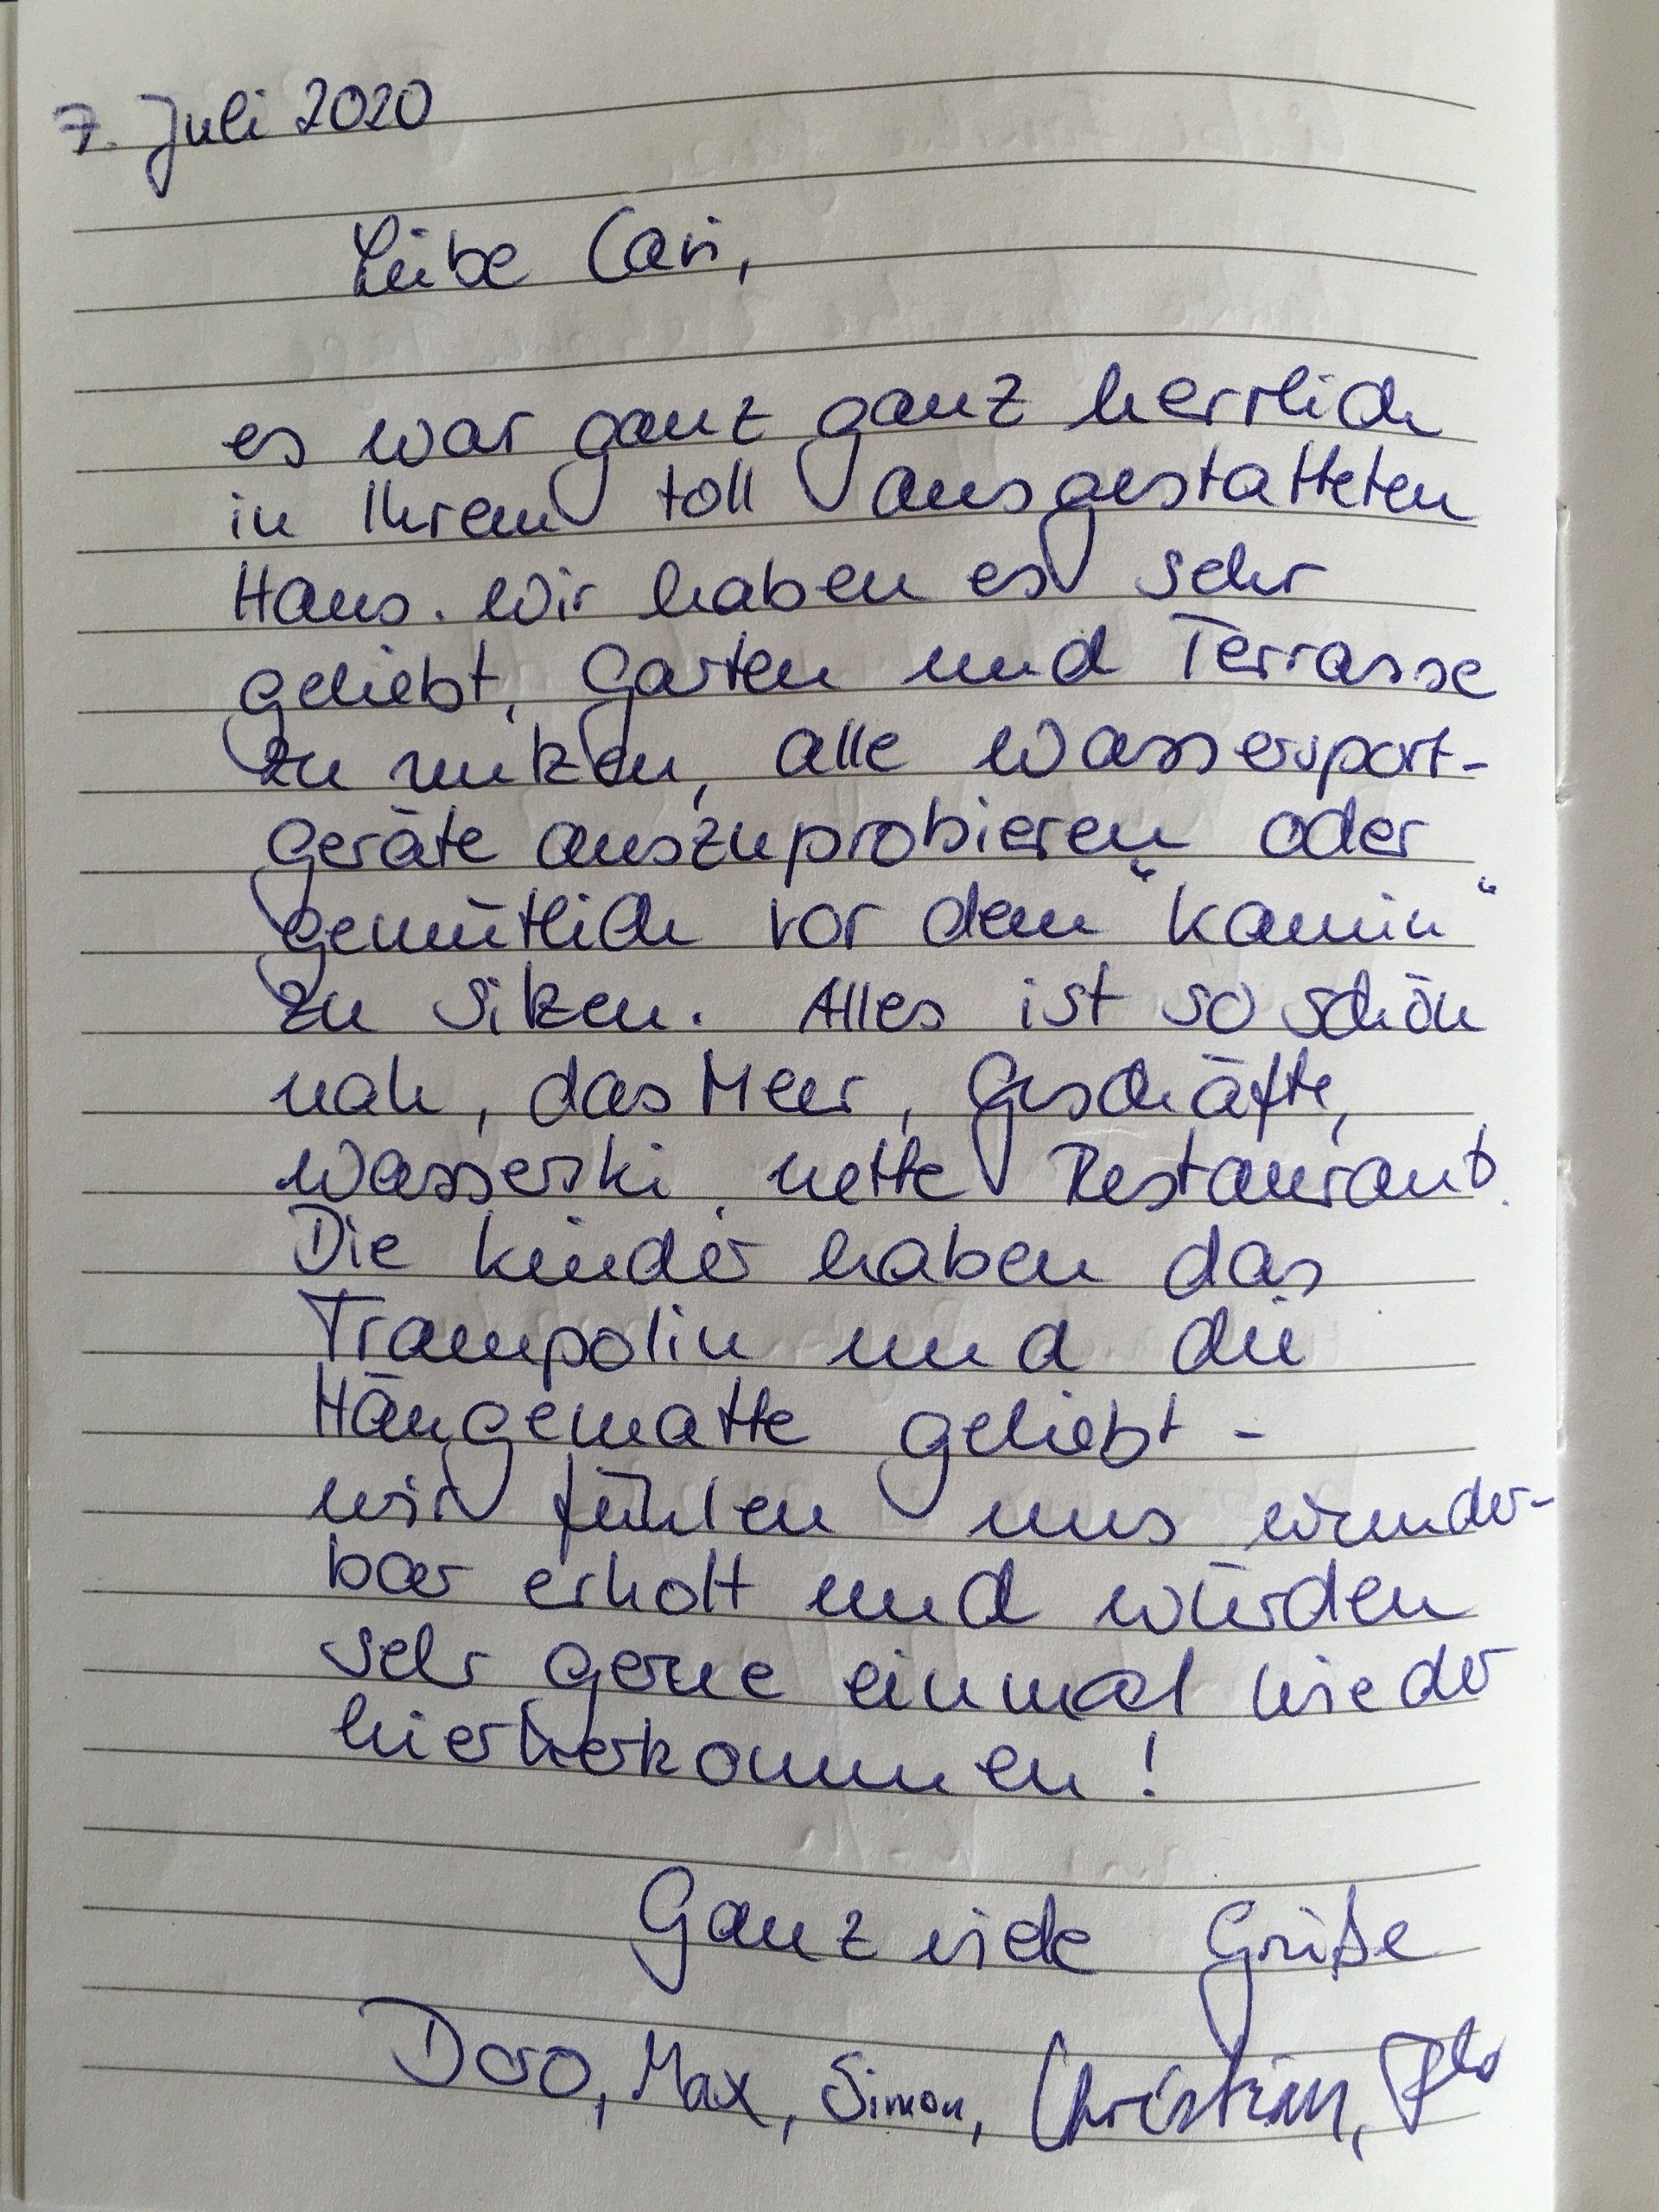 7. Juli 2020
Liebe Cari,
es war ganz ganz herrlich
in Ihrem toll ausgestatteten
Haus. Wir haben es sehr
geliebt, Garten und Terrasse
zu nutzen, alle Wassersport-
geräte auszuprobieren oder
gemütlich vor dem "Kamin"
zu sitzen. Alles ist so schön
nah, das Meer, Geschäfte,
Wasserski, nette Restaurants.
Die Kinder haben das
Trampolin und die
Hängematte geliebt -
wir fühlen uns wunder-
bar erholt und würden
sehr gerne einmal wieder
hierherkommen!
Ganz viele Grüße
Doro, Max, Simon, Christian, Flo